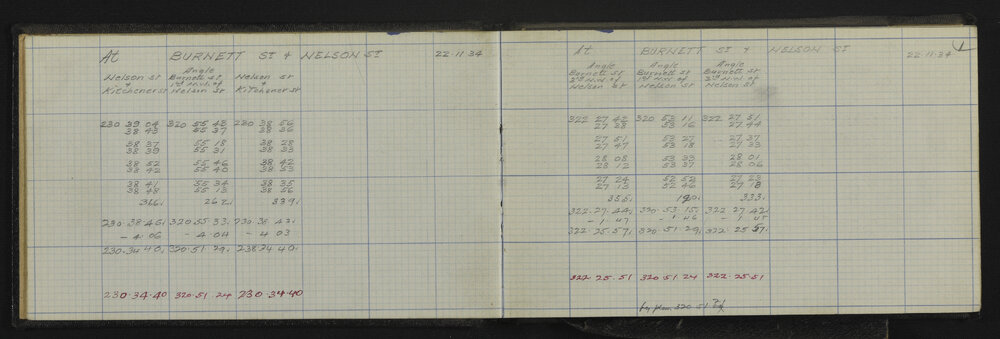 At BURNETT ST & NELSON ST 22-11-34
Nelson St & Kitchener St
Angle Burnett St 1st N.W. of Nelson St
Nelson St & Kitchener St
230 39 04 320 55 43 230 38 56
38 43 55 37 38 36
38 37 55 18 38 28
38 39 55 31 38 33
38 52 55 46 38 42
38 42 55 40 38 33
38 41 55 34 38 35
38 48 55 13 38 56
366. 262. 339.
230.38.46. 320.55.33. 230.38.43.
- 4.06 - 4 04 - 4 03
230.34.40. 320.51.29. 238.34.40.
230.34.40 320.51.24 230.34.40
At BURNETT ST & NELSON ST 22-11-34
Angle Burnett St 2nd N.W. of Nelson St
Angle Burnett St 1st N.W. of Nelson St
Angle Burnett St 2nd N.W. of Nelson St
322 27 42 320 53 11 322 27 51
27 38 53 16 27 44
27 51 53 27 27 37
27 47 53 18 27 33
28 08 53 33 28 01
28 12 53 37 28 06
27 24 52 52 27 23
27 13 52 46 27 18
355. 190. 333.
322.27.44. 320.53.15. 322 27.42
- 1 47 - 1 46 - 1 45
322.25.57. 320.51.29. 322.25 57.
322 25.51 320 51.24 322.25.51
by plan 320 51